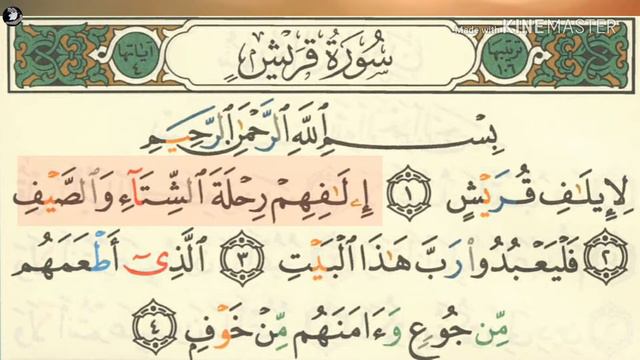 Made with KINEMASTER
ترتيبها ١٠٦ سُورَةُ قُرَيْشٍ آياتها ٤
بِسْمِ ٱللَّهِ ٱلرَّحْمَٰنِ ٱلرَّحِيمِ
لِإِيلَٰفِ قُرَيْشٍ ١ إِۦلَٰفِهِمْ رِحْلَةَ ٱلشِّتَآءِ وَٱلصَّيْفِ
٢ فَلْيَعْبُدُوا۟ رَبَّ هَٰذَا ٱلْبَيْتِ ٣ ٱلَّذِىٓ أَطْعَمَهُم
مِّن جُوعٍ وَءَامَنَهُم مِّنْ خَوْفٍۭ ٤